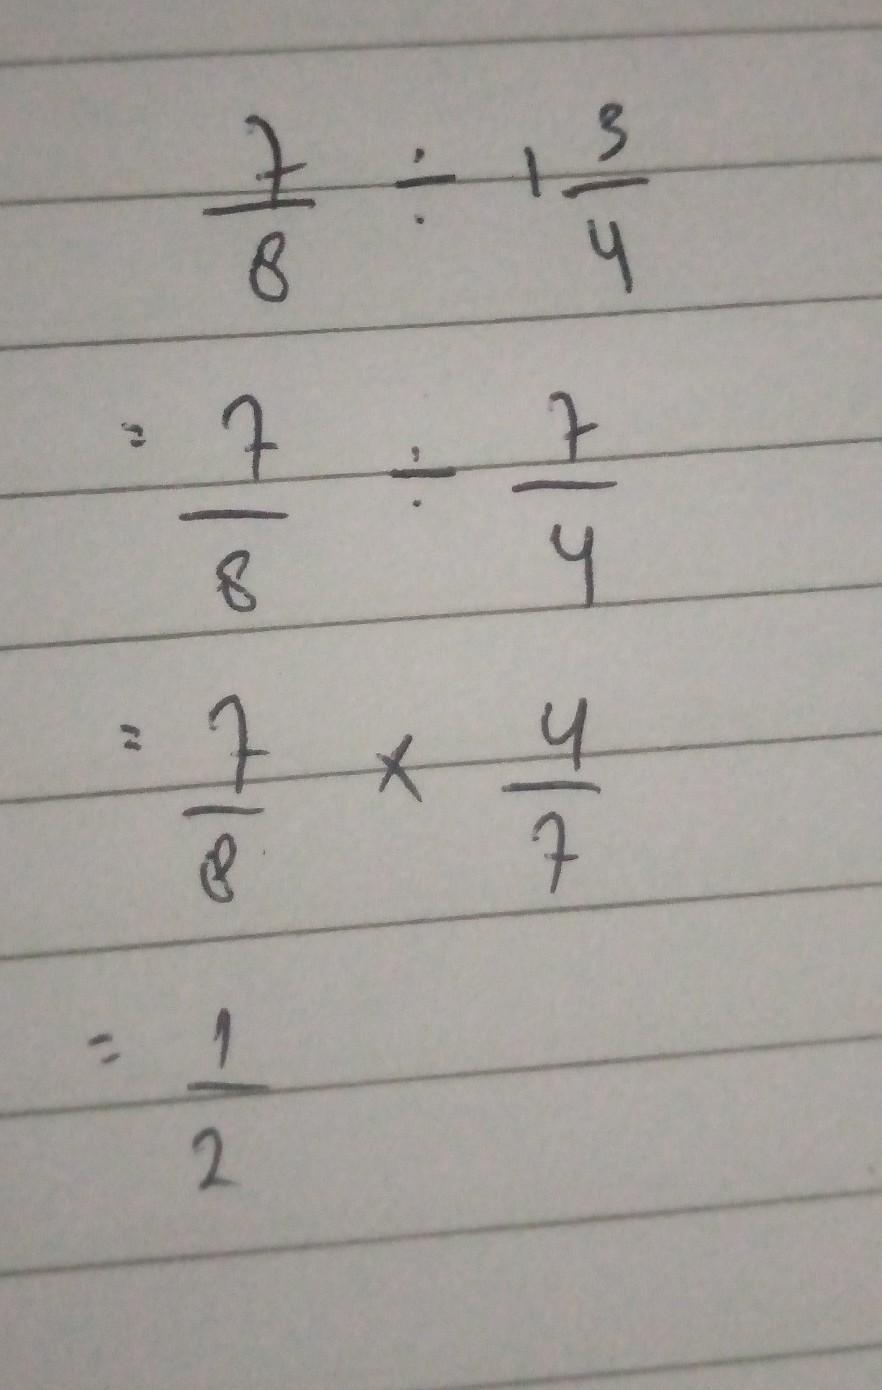 7/8 ÷ 1 3/4
= 7/8 ÷ 7/4
= 7/8 × 4/7
= 1/2